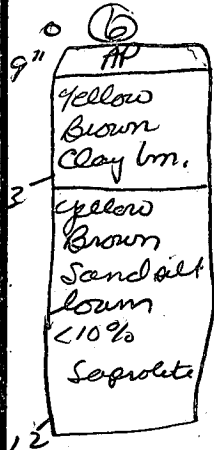 0 6
9" AP
Yellow
Brown
Clay lm.
3
Yellow
Brown
Sand silt
loam
<10%
Saprolite
12